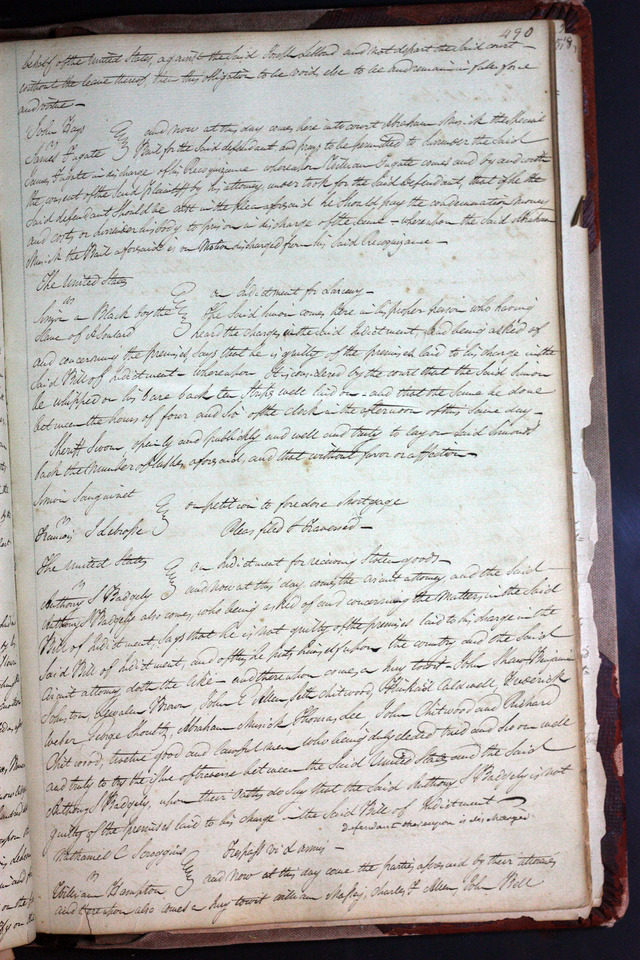 490
behalf of the United States, against the said Joseph Leblond and not depart the said court
without the leave thereof, then this obligation to be void else to be and remain in full force
and virtue —
John Hays
vs
James Fugate
and now at this day comes here into court Abraham Musick the Special
Bail for the said defendant and prays to be permitted to surrender the said
James Fugate in discharge of his Recognizance whereupon William Fugate comes and by and with
the consent of the said Plaintiff by his attorney, undertook for the said Defendant, that if he the
said defendant should be cast in the plea aforesaid he should pay the condemnation money
and costs or surrender his body to prison in discharge of the same — whereupon the said Abraham
Musick the Bail aforesaid is on Motion discharged from his said Recognizance —
The United States
vs
Simon a Black boy the
Slave of A Soulard
on Indictment for Larceny —
The said Simon comes here in his proper person who having
heard the charges in the said Indictment, and being asked of
and concerning the premises, says that he is guilty of the premises laid to his charge in the
said Bill of Indictment — whereupon it is considered by the court that the said Simon
be whipped on his bare back ten Stripes well laid on — and that the same be done
between the hours of four and six of the clock in the afternoon of this same day —
Sheriff Sworn, openly and publickly and well and truly to lay on said Simon's
back the number of lashes aforesaid, and that without favor or affection —
Simon Sanguinet
vs
François
on petition to foreclose Mortgage
Pleas filed & Traversed —
The United States
vs
Anthony S Badgely
on Indictment for receiving Stolen goods —
and now at this day comes the circuit attorney and the said
Anthony S Badgely also comes, who being asked of and concerning the Matters, in the said
Bill of Indictment, says that he is not guilty of the premises laid to his charge in the
said Bill of Indictment, and of this he puts himself upon the country and the said
circuit attorney doth the like — and thereupon comes a Jury towit John Shaw Benjamin
Johnston, Brown, John P Allen, Seth Chitwood, Caldwell, Frederick
Weber George Shoultz, Abraham Musick, Thomas Lee, John Chitwood and Richard
Chitwood, twelve good and lawful men who being duly elected tried and sworn well
and truly to try the issue of traverse between the said United States and the said
Anthony S Badgely, upon their oaths do say that the said Anthony S Badgely is not
guilty of the premises laid to his charge in the said Bill of Indictment —
defendant thereupon is discharged
Nathaniel C Scroggins
vs
William Hampton
Trespass vi & armis —
and now at this day come the parties aforesaid by their attornies
and thereupon also comes a Jury towit William Massey, Charles F Allen, John Bell